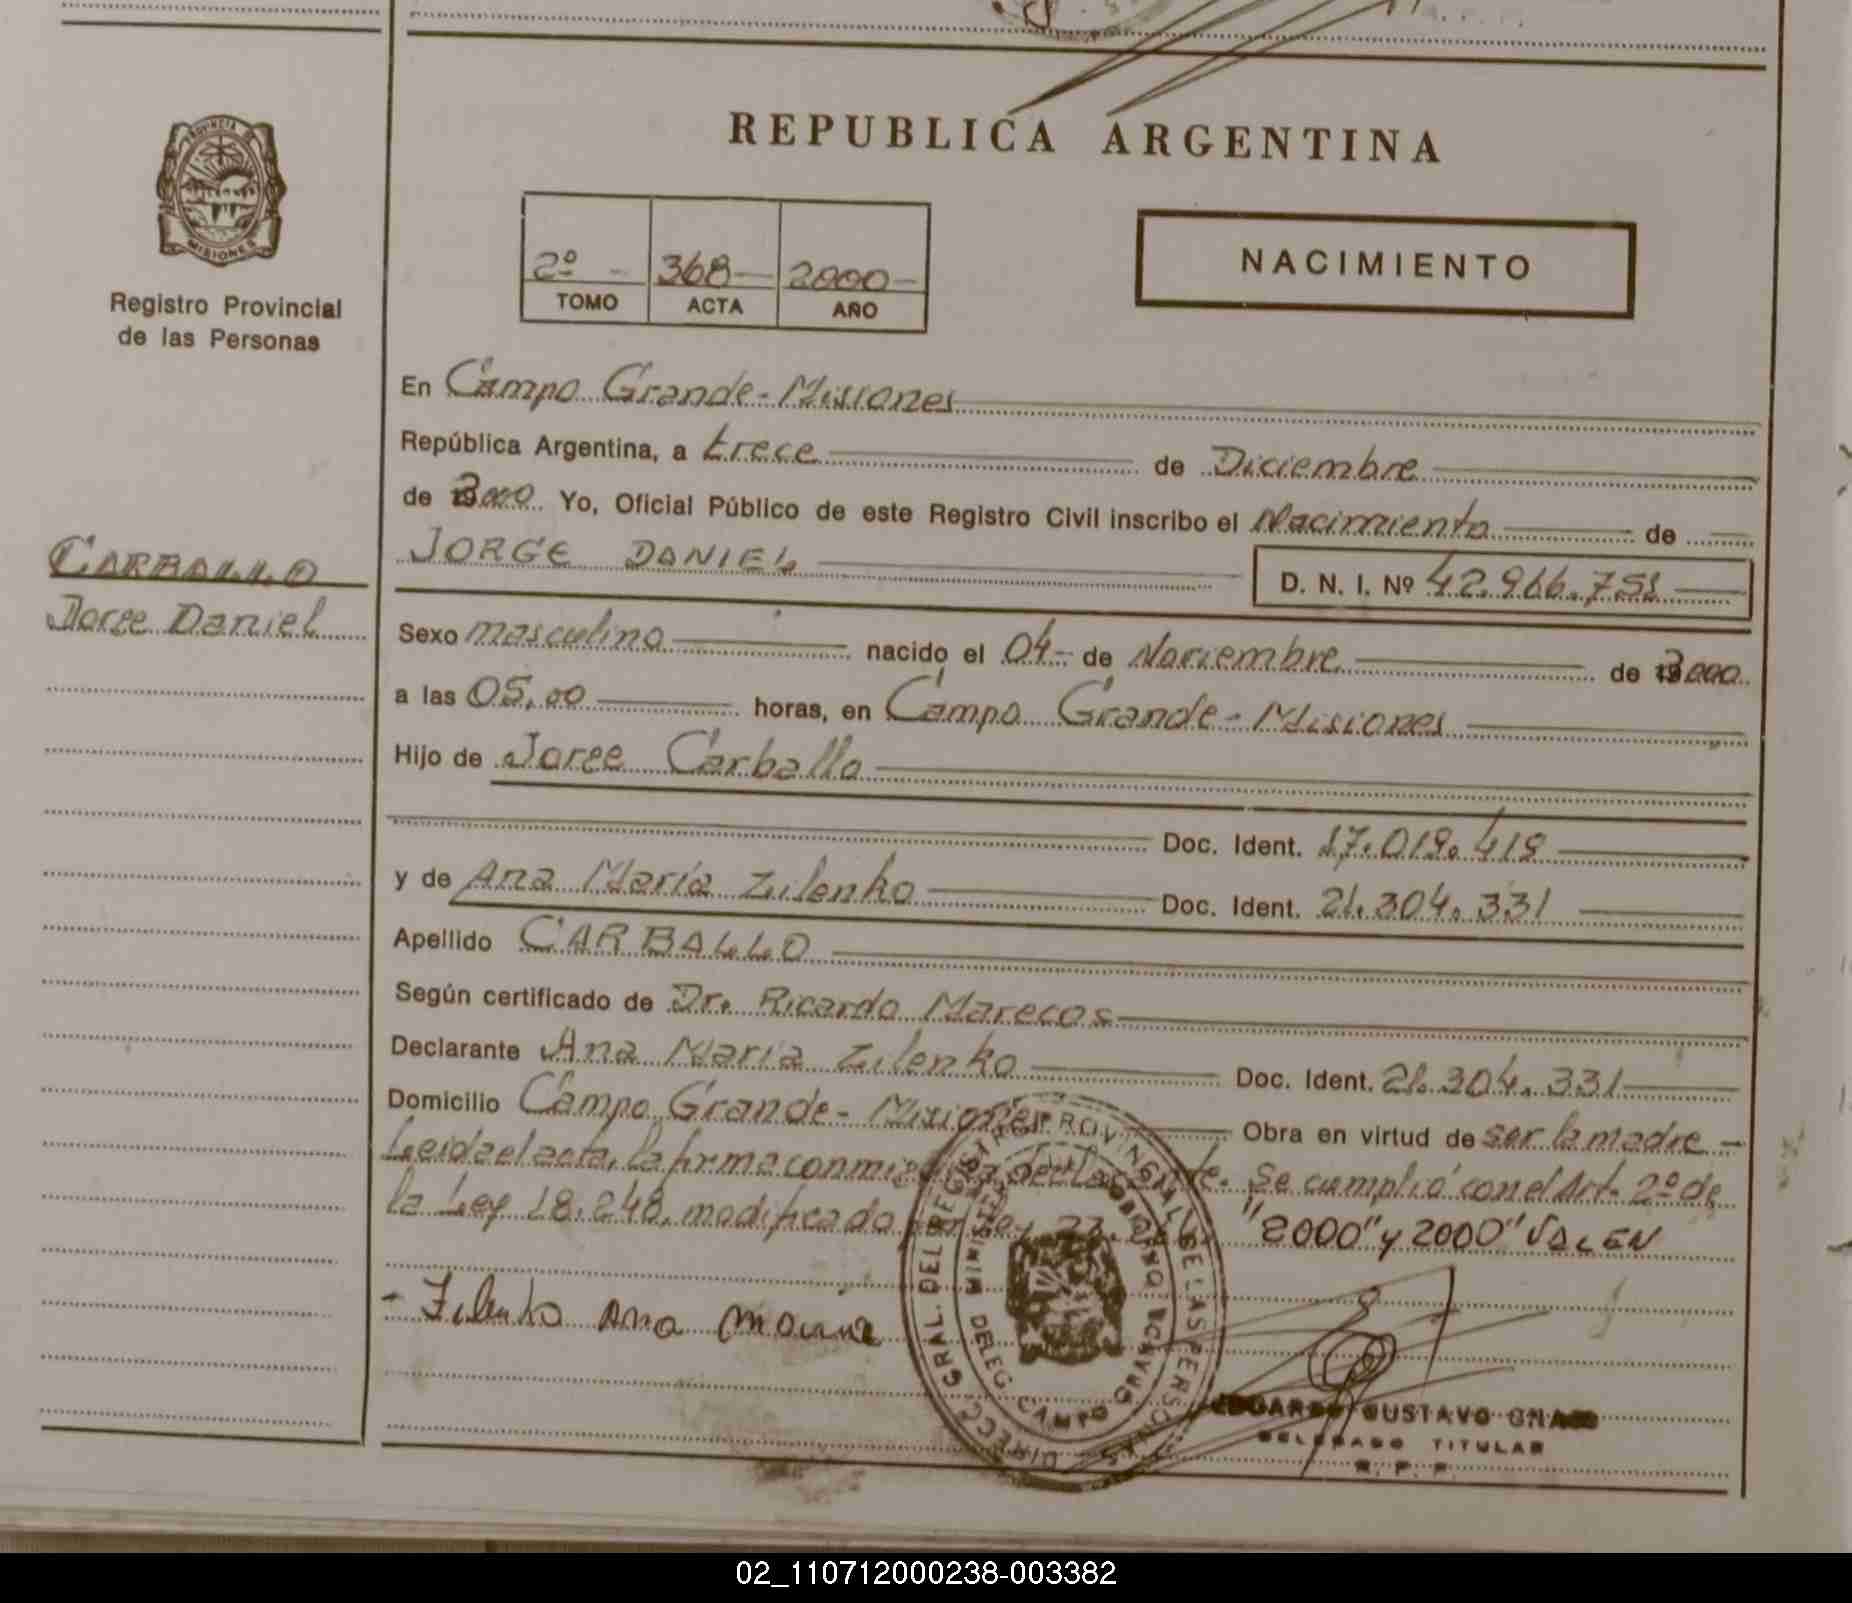 REPUBLICA ARGENTINA
PROVINCIA DE
MISIONES
Registro Provincial
de las Personas
2º - 368 2000
TOMO ACTA AÑO
NACIMIENTO
En Campo Grande - Misiones
República Argentina, a trece de Diciembre
de 2000 Yo, Oficial Público de este Registro Civil inscribo el Nacimiento de
CARBALLO
Jorge Daniel
JORGE DANIEL D. N. I. Nº 42.966.751
Sexo masculino nacido el 04 - de Noviembre de 2000
a las 05,00 horas, en Campo Grande - Misiones
Hijo de Jorge Carballo
Doc. Ident. 17.019.419
y de Ana María Zilenko Doc. Ident. 21.304.331
Apellido CARBALLO
Según certificado de Dr. Ricardo Marecos
Declarante Ana María Zilenko Doc. Ident. 21.304.331
Domicilio Campo Grande - Misiones Obra en virtud de ser la madre -
Leida el acta, la firma conmigo la declarante. Se cumplió con el Art. 2º de
la Ley 18.248, modificado por "2000" y 2000" VALEN
- Zilenko Ana Maria
DIRECC. GRAL. DEL REGISTRO PROVINCIAL DE LAS PERSONAS
DELEG. CAMPO
GUSTAVO
DELEGADO TITULAR
R. P. P.
02_110712000238-003382